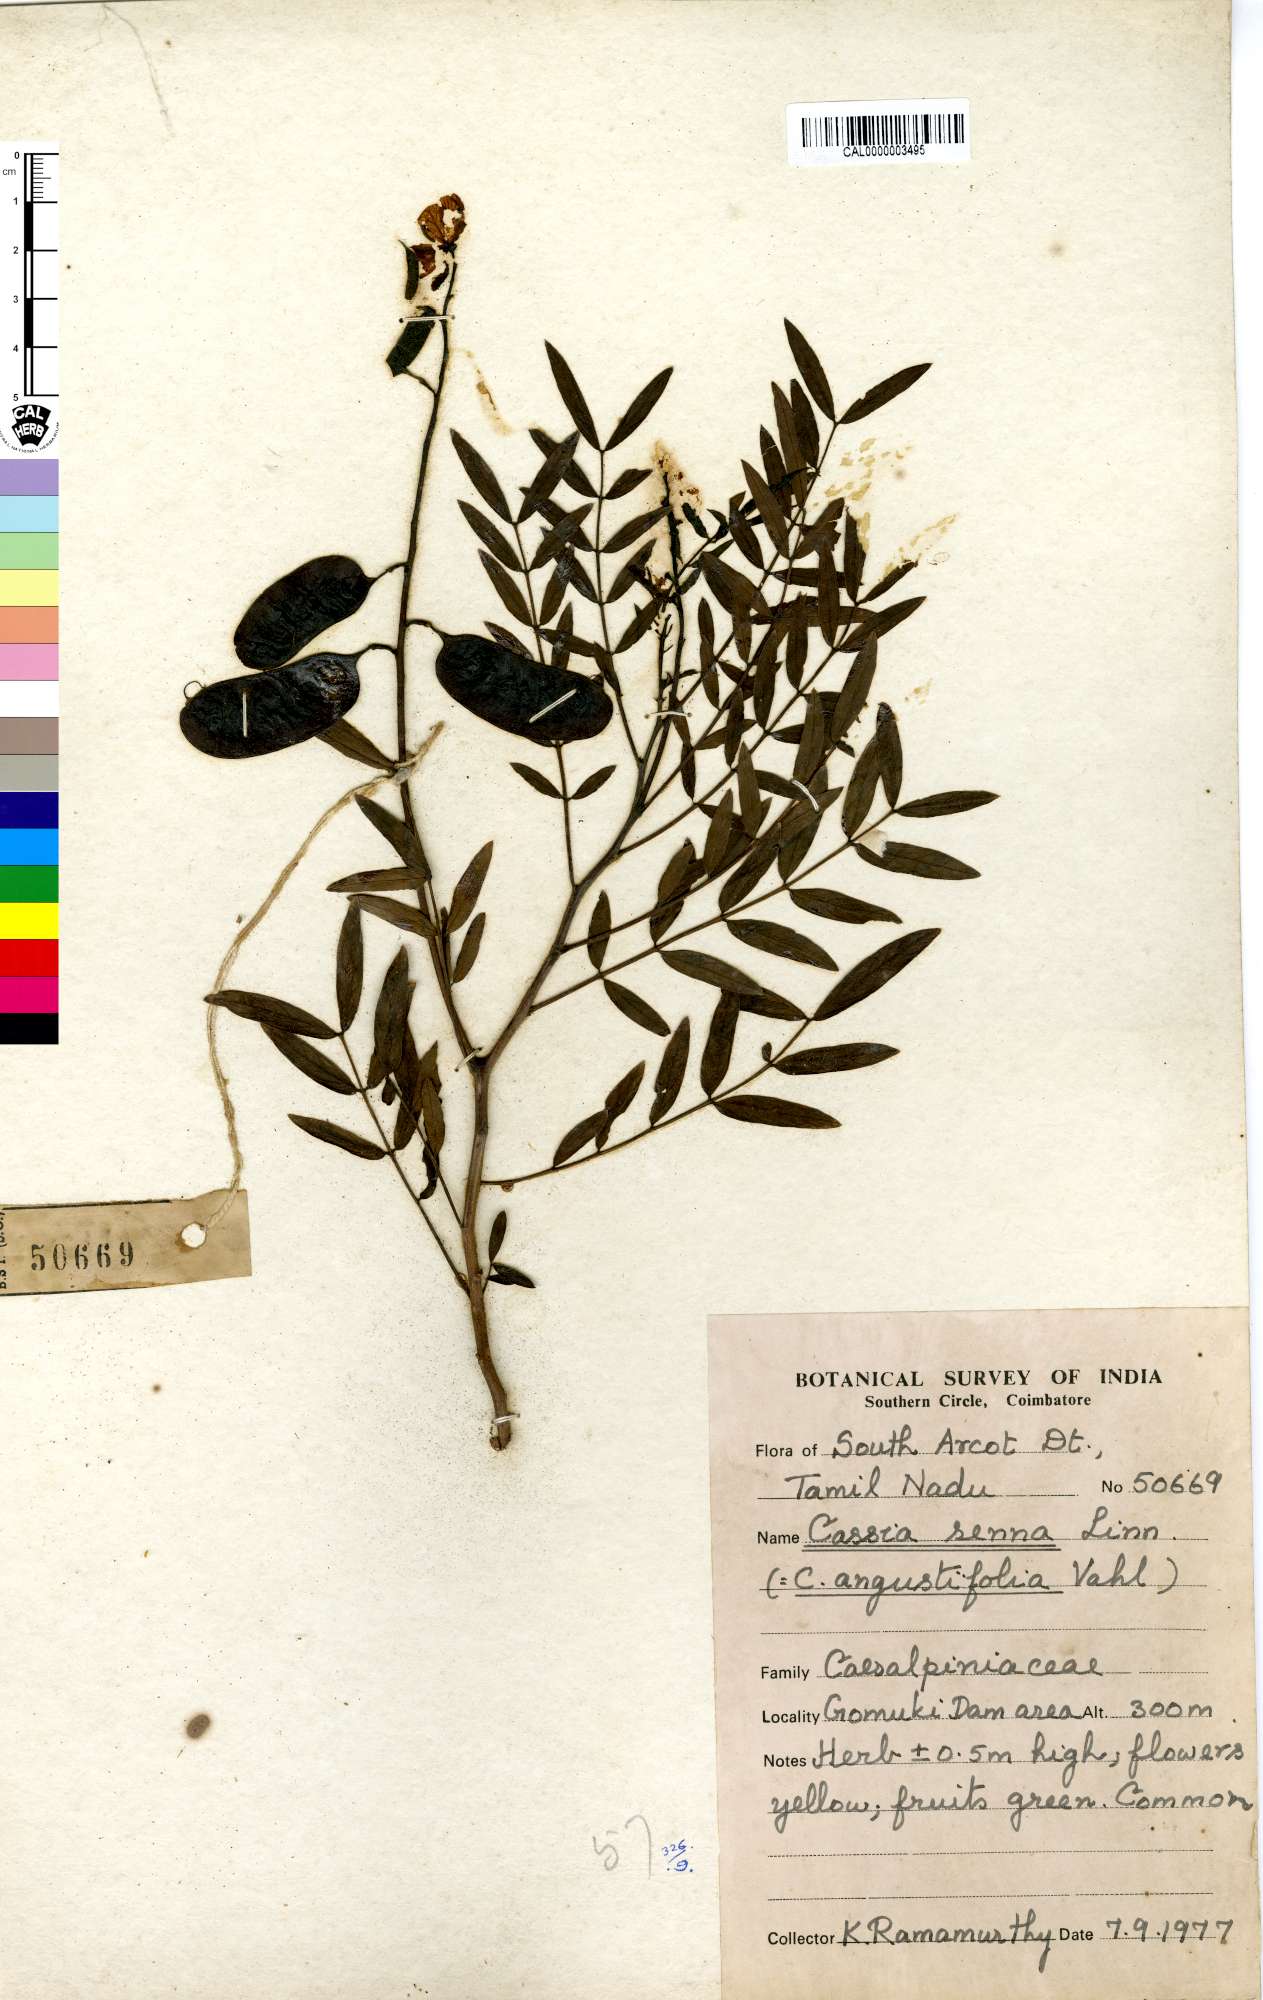 CAL0000003495
0
cm
1
2
3
4
5
CAL
HERB
50669
BOTANICAL SURVEY OF INDIA
Southern Circle, Coimbatore
Flora of South Arcot Dt.,
Tamil Nadu No 50669
Name Cassia senna Linn.
(= C. angustifolia Vahl)
Family Caesalpiniaceae
Locality Gomuki Dam area Alt. 300m.
Notes Herb ± 0.5m high; flowers
yellow; fruits green. Common
57
326.
.9.
Collector K. Ramamurthy Date 7.9.1977